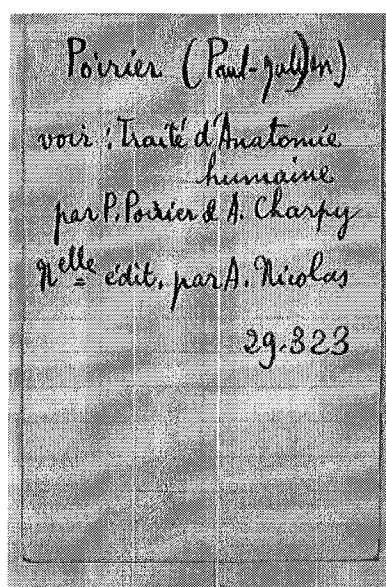 Poirier (Paul-Julien)
voir : Traité d'Anatomie
humaine
par P. Poirier & A. Charpy
Nelle édit, par A. Nicolas
29.323